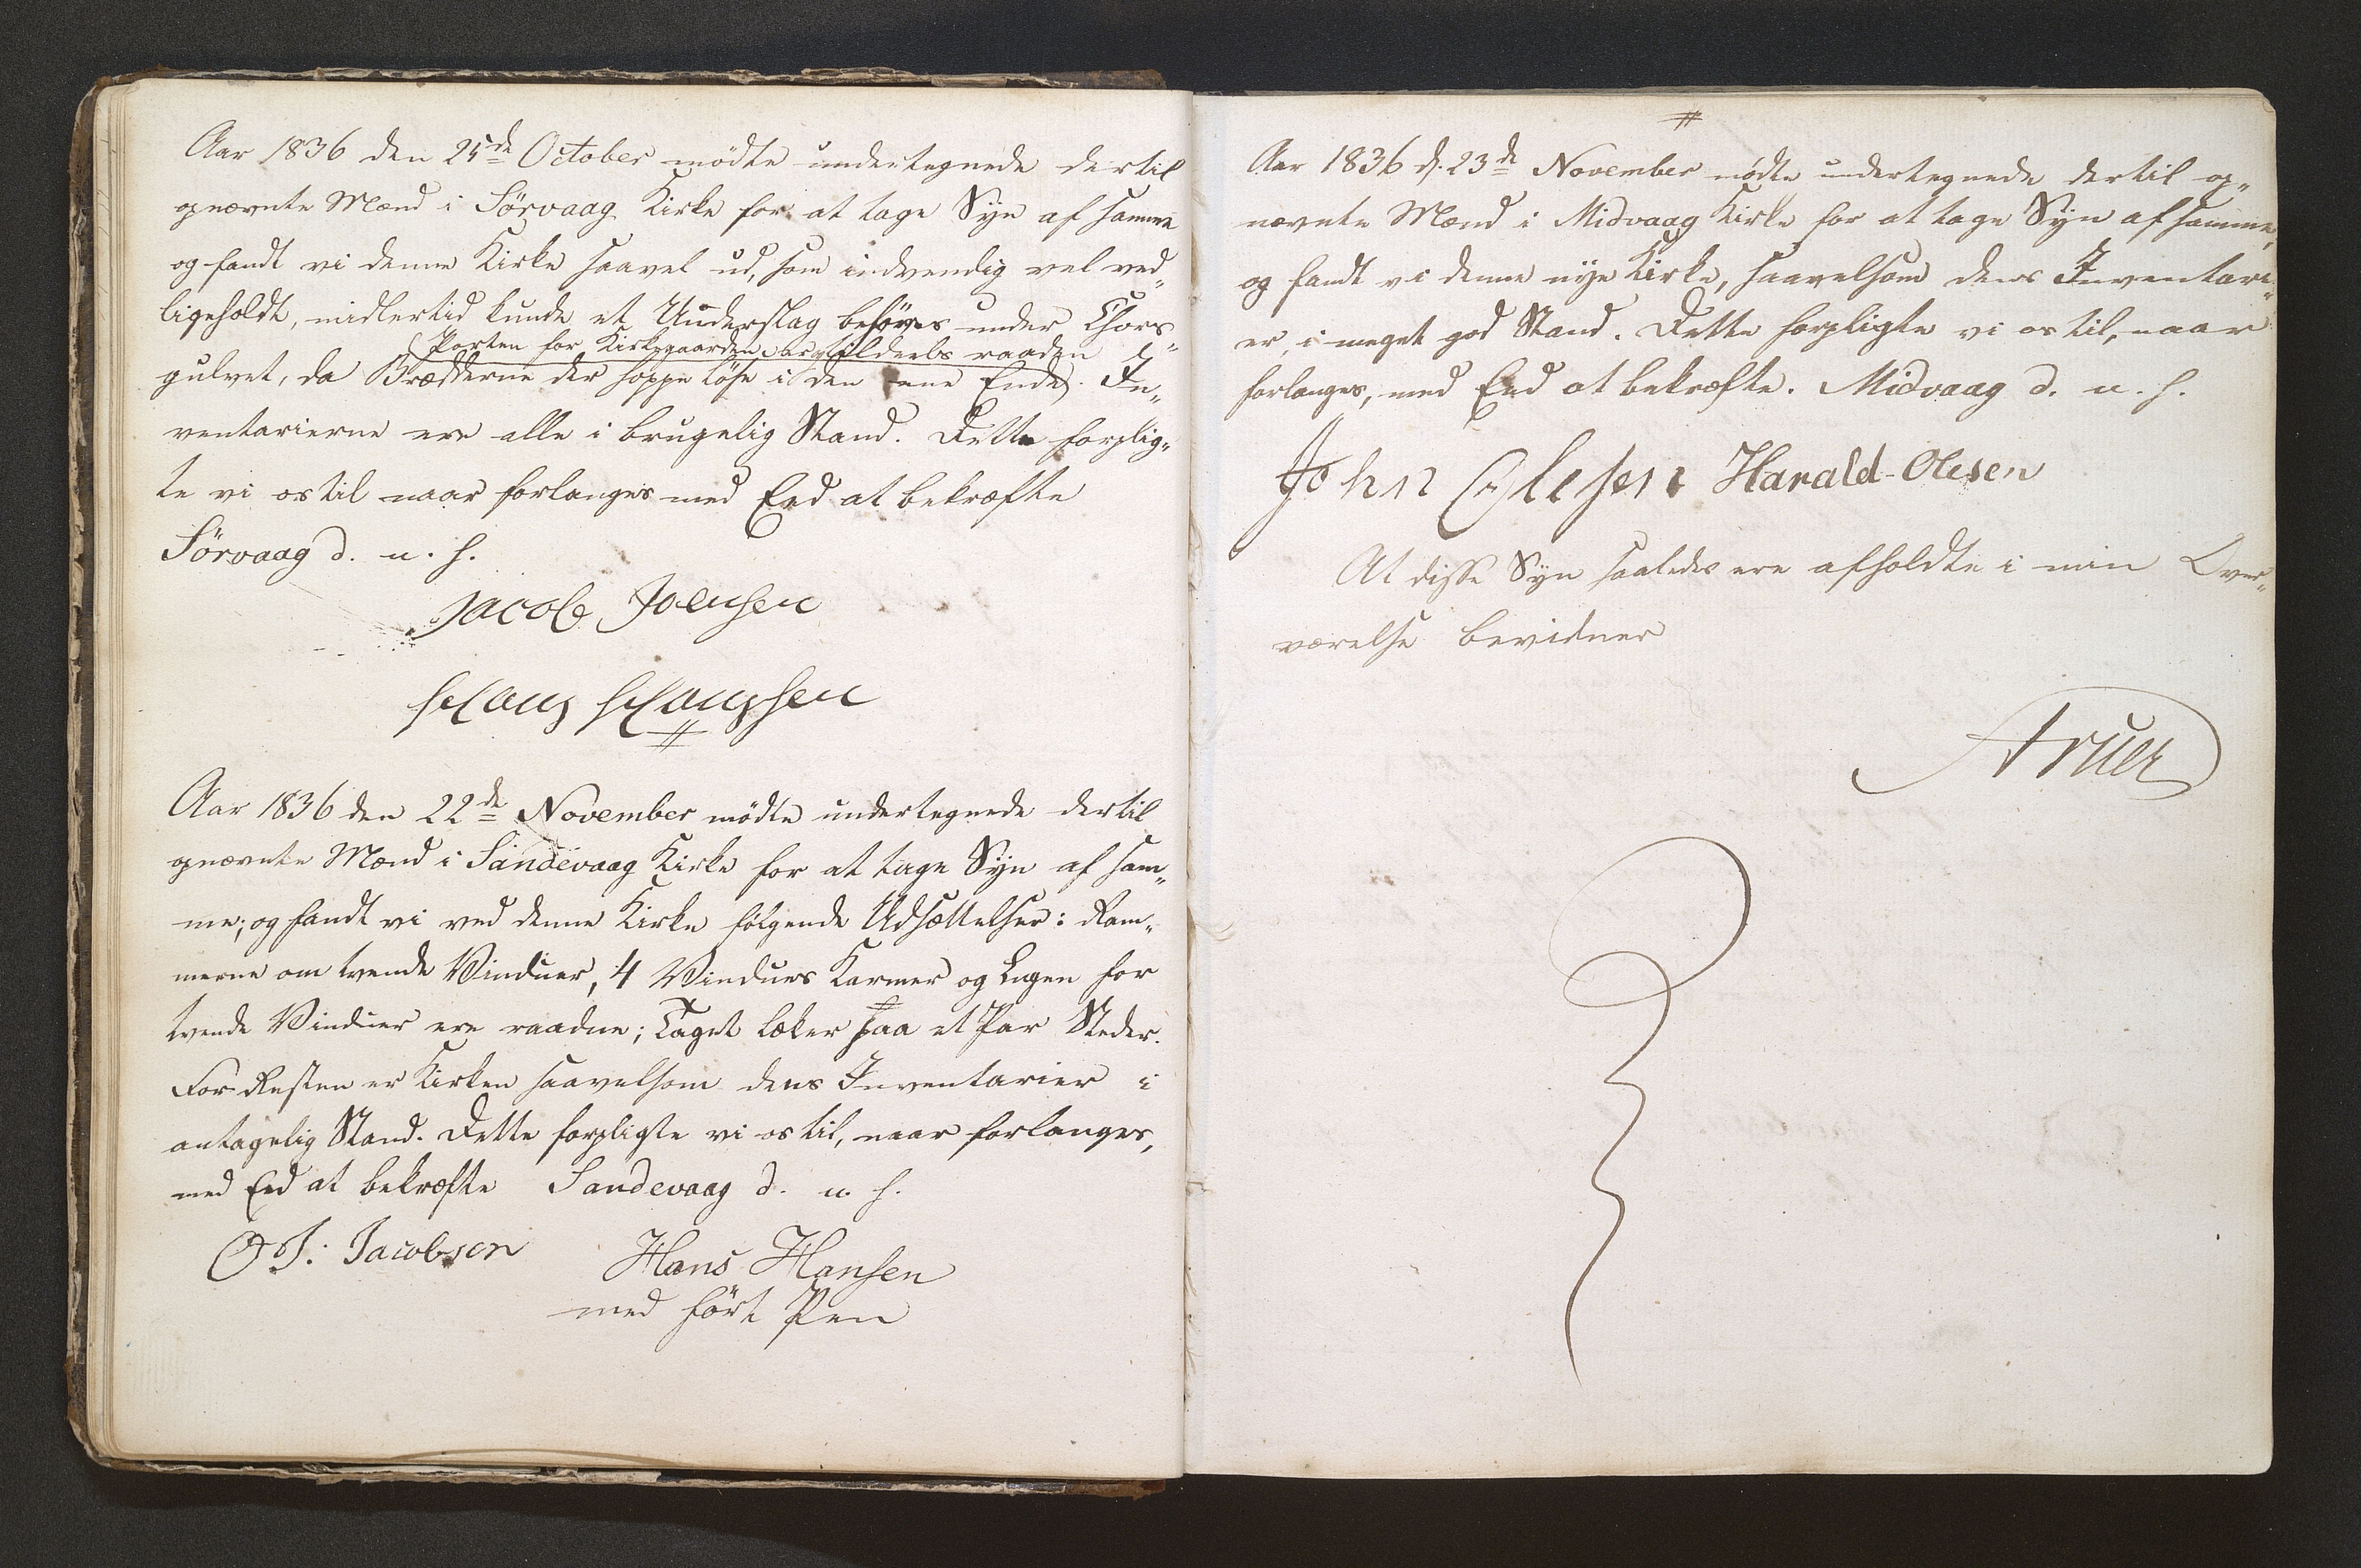 Aar 1836 den 25de October mødte undertegnede dertil
opnævnte Mænd i Sörvaag Kirke for at tage Syn af samme
og fandt vi denne Kirke saavel ud, som indvendig vel ved„
ligeholdt, midlertid kunde et Underslag behöves under Chors„
(Porten for Kirkegaarden er tildeels raaden
gulvet, da Brædderne der hoppe löse i den ene Ende). In„
ventarierne ere alle i brugelig Stand. Dette forplig„
te vi os til naar forlanges med Eed at bekræfte
Sörvaag d. u. s.
Jacob Joensen
Hans Hansen
Aar 1836 den 22de November mödte undertegnede dertil
opnævnte Mænd i Sandevaag Kirke for at tage Syn af sam„
me; og fandt vi ved denne Kirke fölgende Udsættelser: Ram„
merne om tvende Vinduer, 4 Vindues Karmer og Lugen for
tvende Vinduer ere raadne; Taget læker paa et Par Steder.
For Resten er Kirken saavelsom dens Inventarier i
antagelig Stand. Dette forpligte vi os til, naar forlanges,
med Eed at bekræfte Sandevaag d. u. s.
O J: Jacobsen Hans Hansen
med fört Pen
Aar 1836 d. 23de November mödte undertegnede dertil op„
nævnte Mænd i Midvaag Kirke for at tage Syn af samme,
og fandt vi denne nye Kirke, saavelsom dens Inventari„
er, i meget god Stand. Dette forpligte vi os til, naar
forlanges, med Eed at bekræfte. Midvaag d. u. s.
John Olesen Harald Olesen
At disse Syn saaledes ere afholdte i min Over„
værelse bevidner